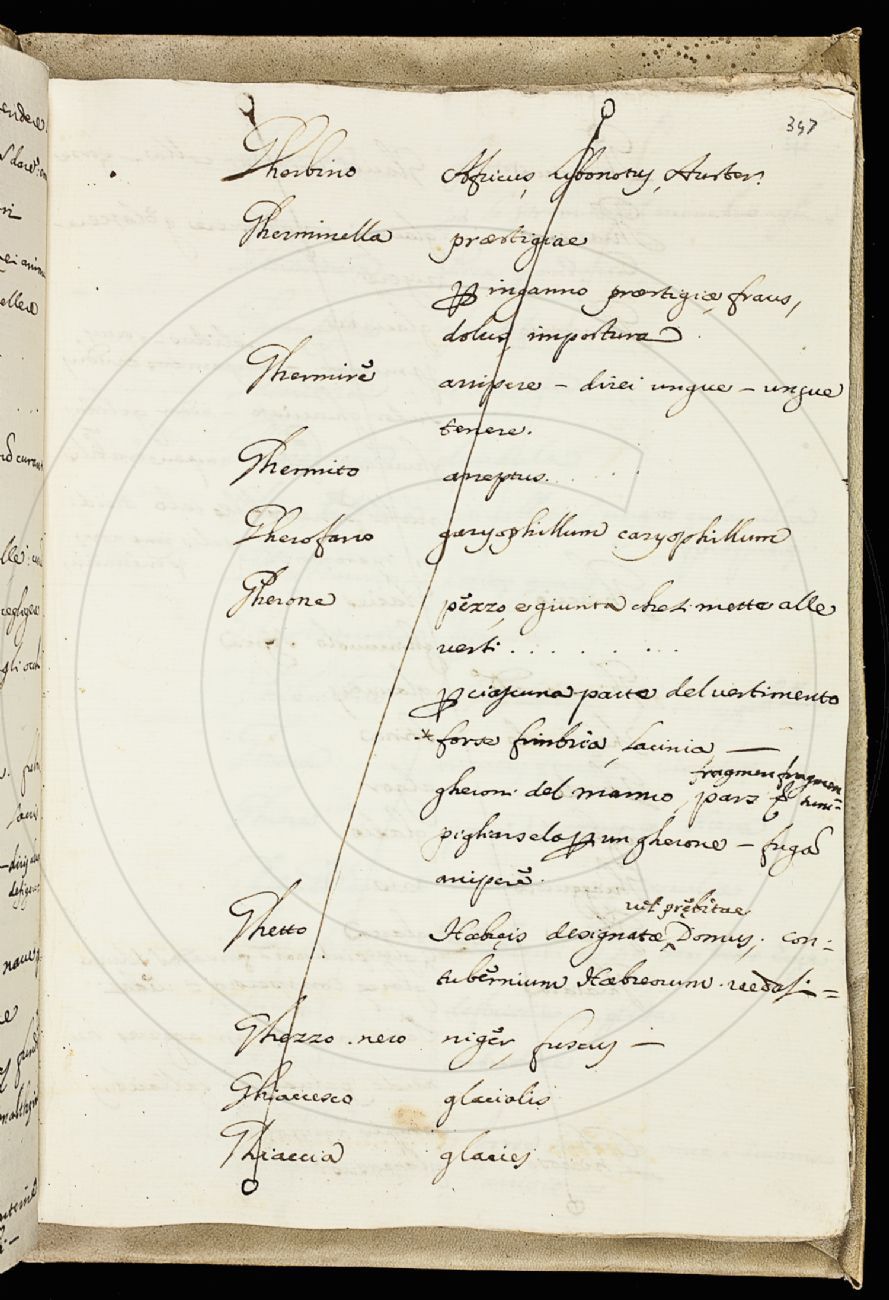 347
Gherbino Africus, Lybonotus, Auster.
Gherminella præstigiae
ꝑ inganno præstigiæ, fraus,
dolus, impostura
Ghermirè arripere – direi ungue – ungue
tenere.
Ghermito arreptus.
Gherofano garyophillum caryophillum
Gherone pèzzo, e giunta che si mette alle
vesti . . . . . . . .
ꝑ ciascuna parte del vestimento
* forse fimbria, lacinia —
gheroni del manto, pars
pigliarselo ꝑ un gherone – fugā
ariperē.
vel præbitae
Hæbreis designatæ Domus, con=
Ghetto
tubèrnium Hæbreorum. vedasi=
Ghezzo. nero nigèr, fuscus —
Ghiaccesco glacialis
Ghiaccia glacies